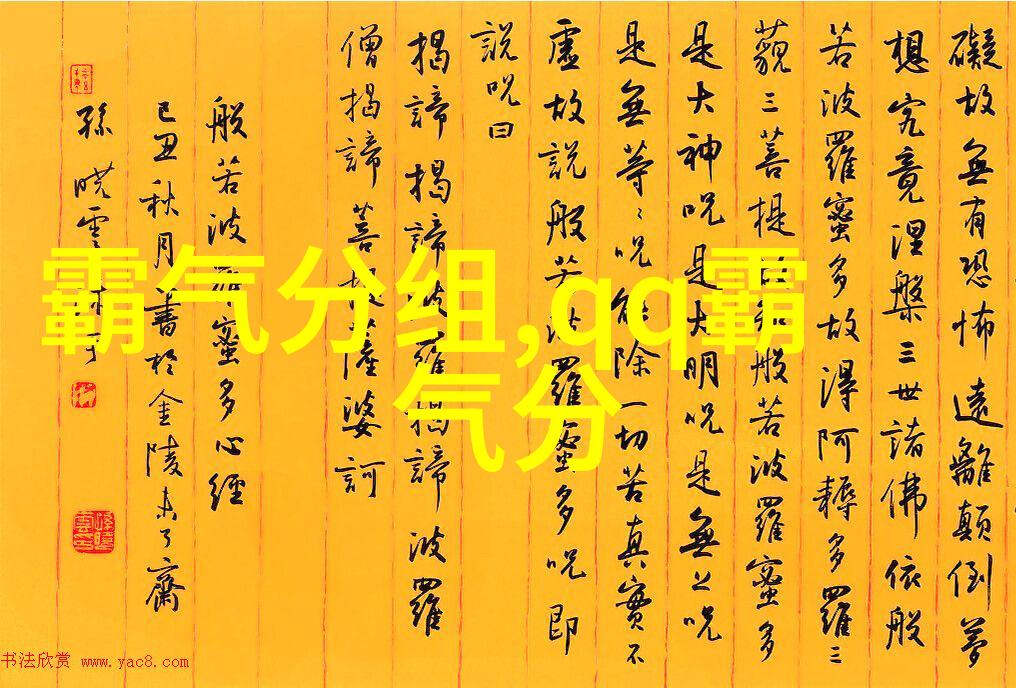 礙故無有恐怖遠離顛倒夢
想究竟涅槃三世諸佛依般
若波羅蜜多故得阿耨多羅三
藐三菩提故知般若波羅蜜多
是大神呪是大明呪是無上呪
是無等〻呪能除一切苦真實不
虛故說般若波羅蜜多呪即
說呪曰
揭諦揭諦波羅揭諦波羅
僧揭諦菩提薩婆訶
般若波羅蜜多心經
己丑秋月書於金陵未了齋
孫曉雲沐手
霸气分组,qq霸
气分
书法欣赏 www.yac8.com